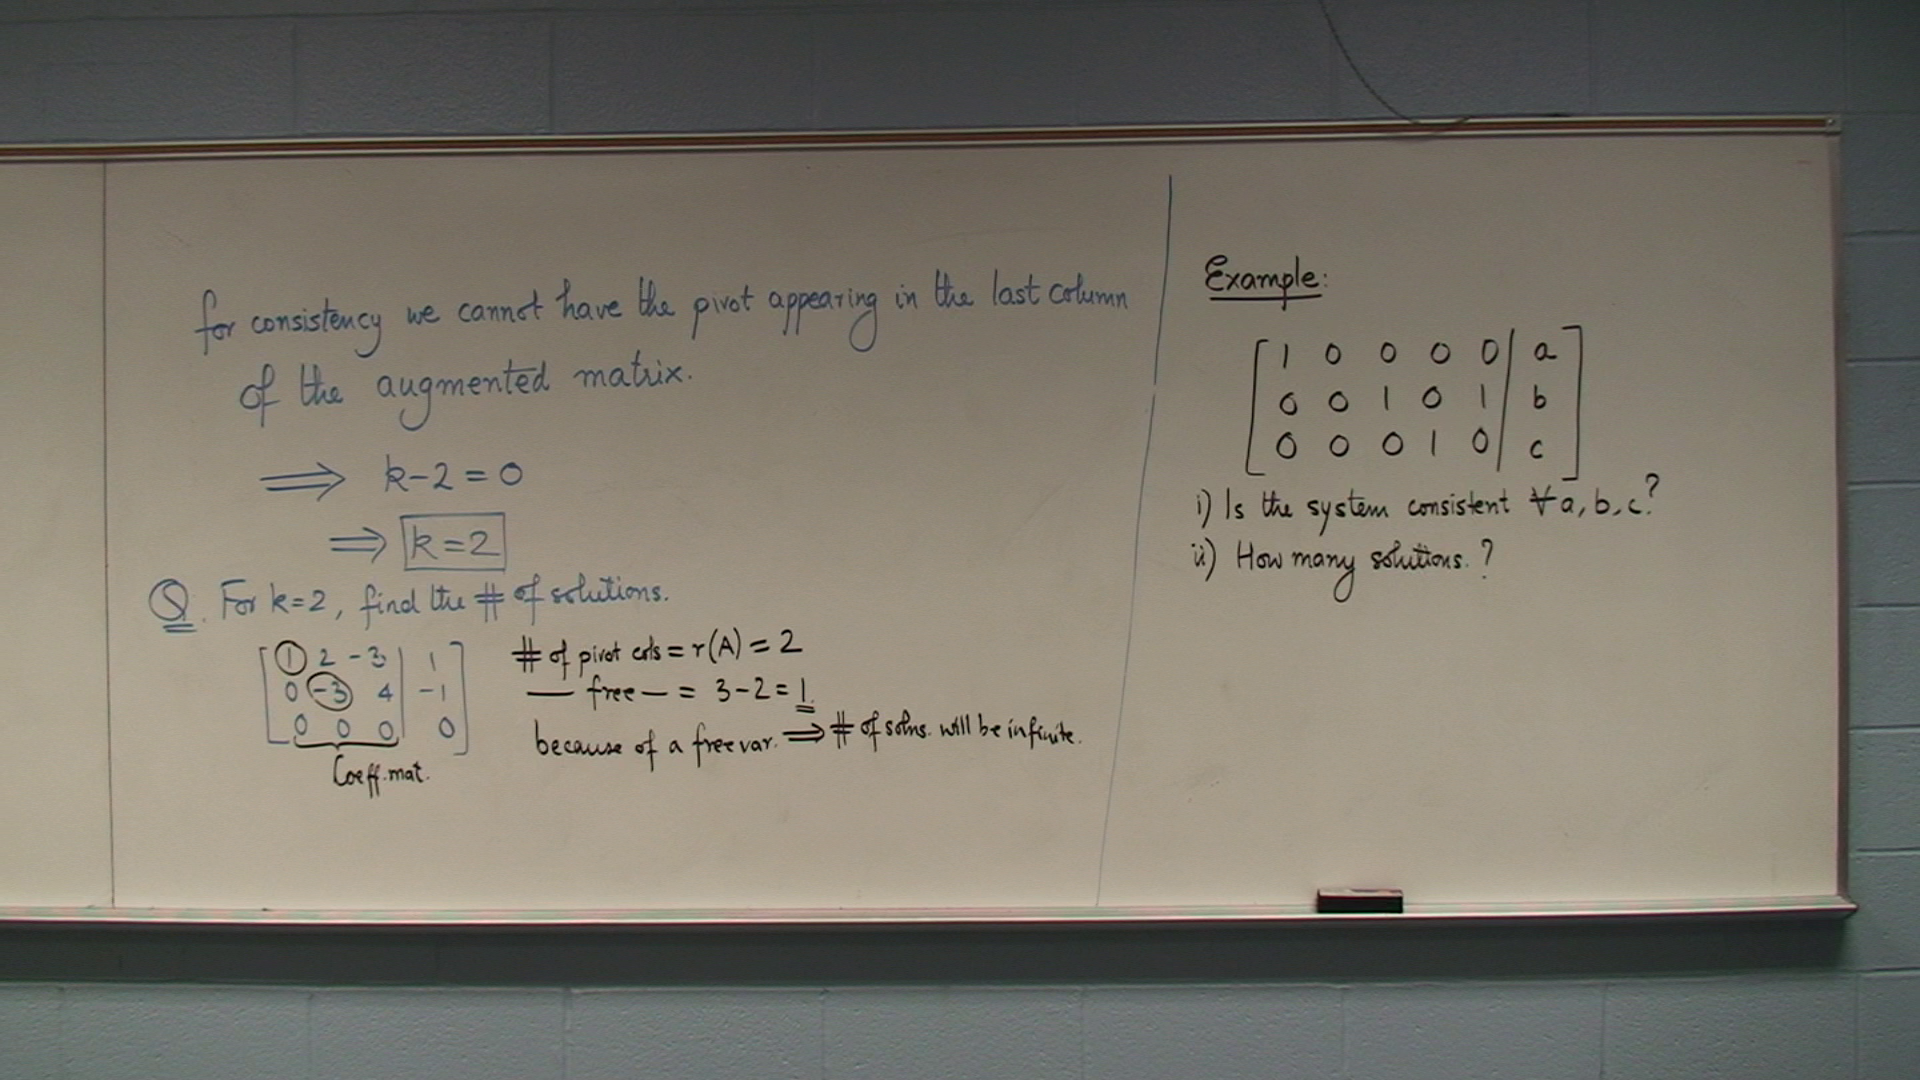 for consistency we cannot have the pivot appearing in the last column
of the augmented matrix.
⟹ k-2 = 0
⟹ k=2
Q. For k=2, find the # of solutions.
[ 1 2 -3 | 1 ]
[ 0 -3 4 | -1 ]
[ 0 0 0 | 0 ]
Coeff.mat.
# of pivot cols = r(A) = 2
— free — = 3-2 = 1.
because of a free var. ⟹ # of solns. will be infinite.
Example:
[ 1 0 0 0 0 | a ]
[ 0 0 1 0 1 | b ]
[ 0 0 0 1 0 | c ]
i) Is the system consistent ∀ a, b, c?
ii) How many solutions. ?